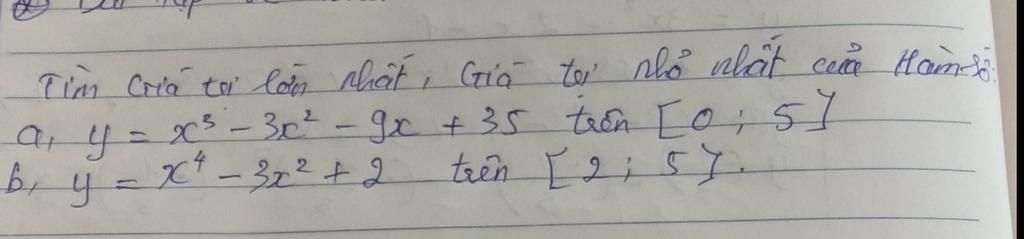 Tìm Giá trị lớn nhất, Giá trị nhỏ nhất của Hàm số:
a, y = x³ - 3x² - 9x + 35 trên [0 ; 5]
b, y = x⁴ - 3x² + 2 trên [2 ; 5].